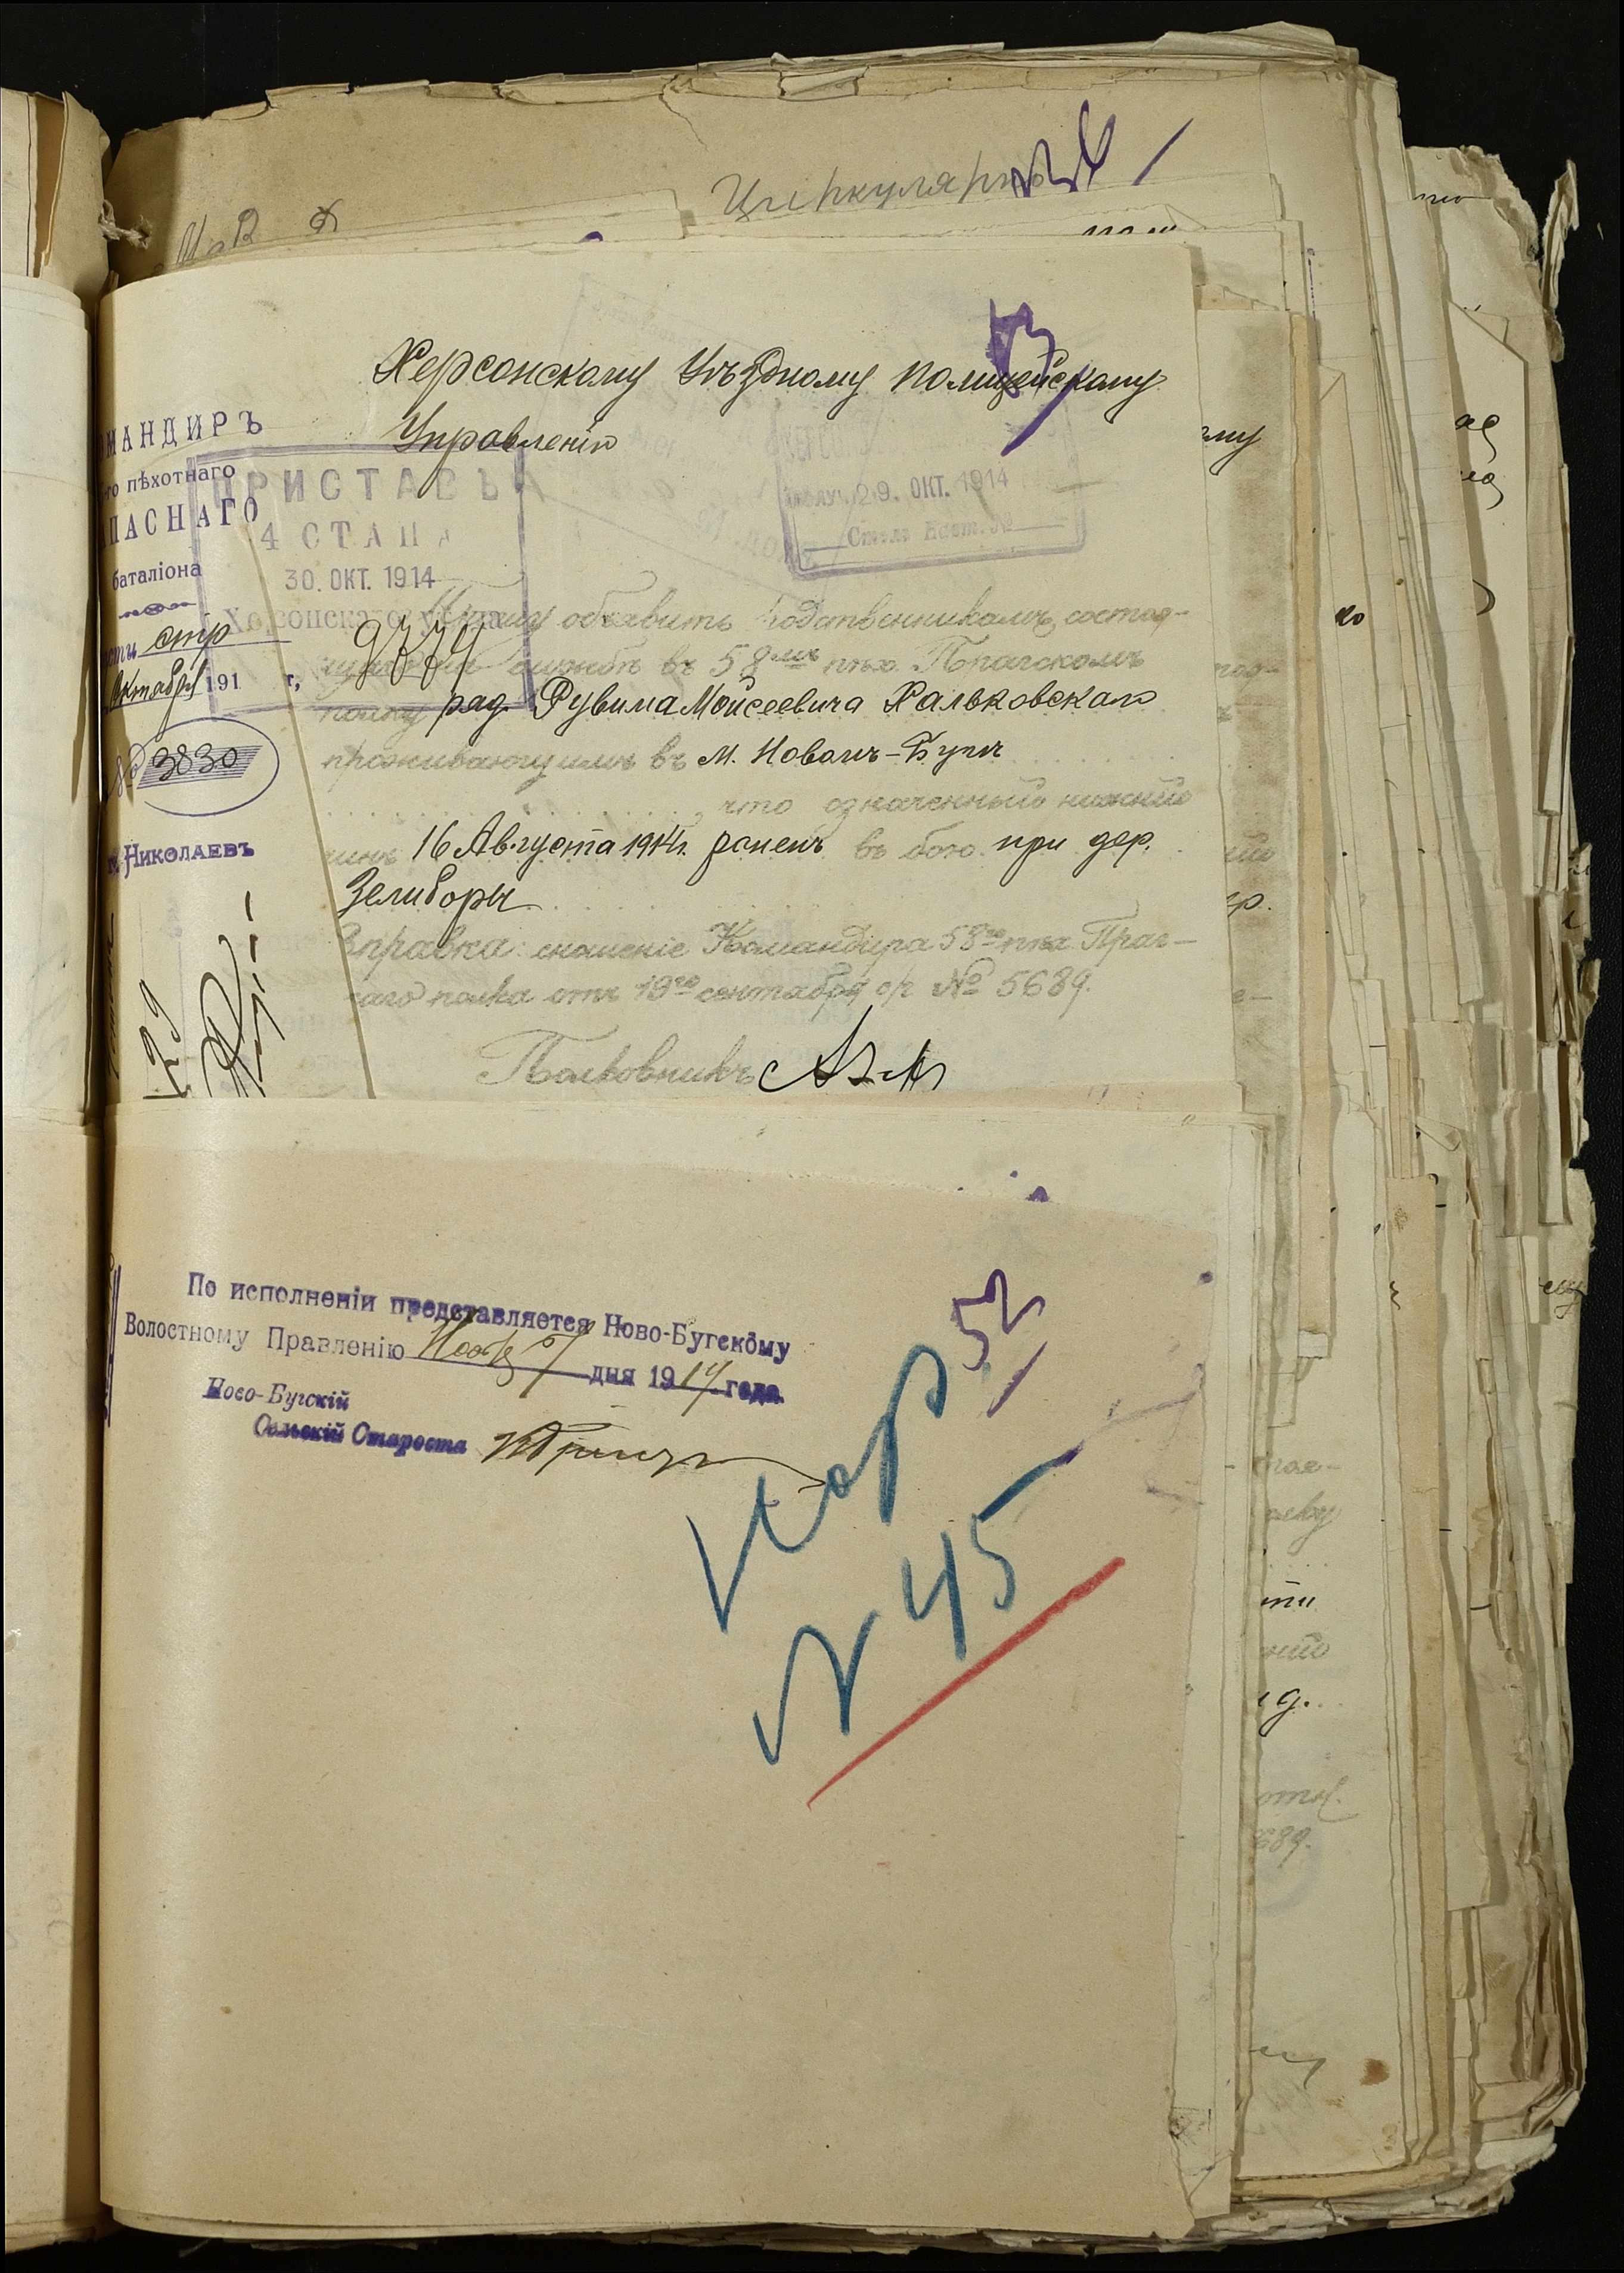 Циркуляры
Херсонскому Уѣздному Полицейскому
Управленію
МАНДИРЪ
го пѣхотнаго
ПАСНАГО
баталіона
стр
Октября 191 г.
№ 3830
г. НИКОЛАЕВЪ
ПРИСТАВЪ
4 СТАНА
30. ОКТ. 1914
Херсонскаго уѣзда
9779
29. ОКТ. 1914
Столъ Наст. №
Прошу объявить родственникамъ, состоя-
въ 58мъ пѣх. Прагскомъ
полку ряд. Рувима Моисеевича Хальковскаго
проживающимъ въ м. Новомъ-Бугѣ
что означенный нижній
чинъ 16 Августа 1914 г. раненъ въ бою при дер.
Зелиборы
Справка: сношеніе Командира 58го пѣх. Праг-
полка отъ 19го сентября с/г № 5689.
Полковникъ
По исполненіи представляется Ново-Бугскому
Волостному Правленію Нояб 7 дня 1914 года.
Ново-Бугскій
Сельскій Староста
52
Нояб
№ 45